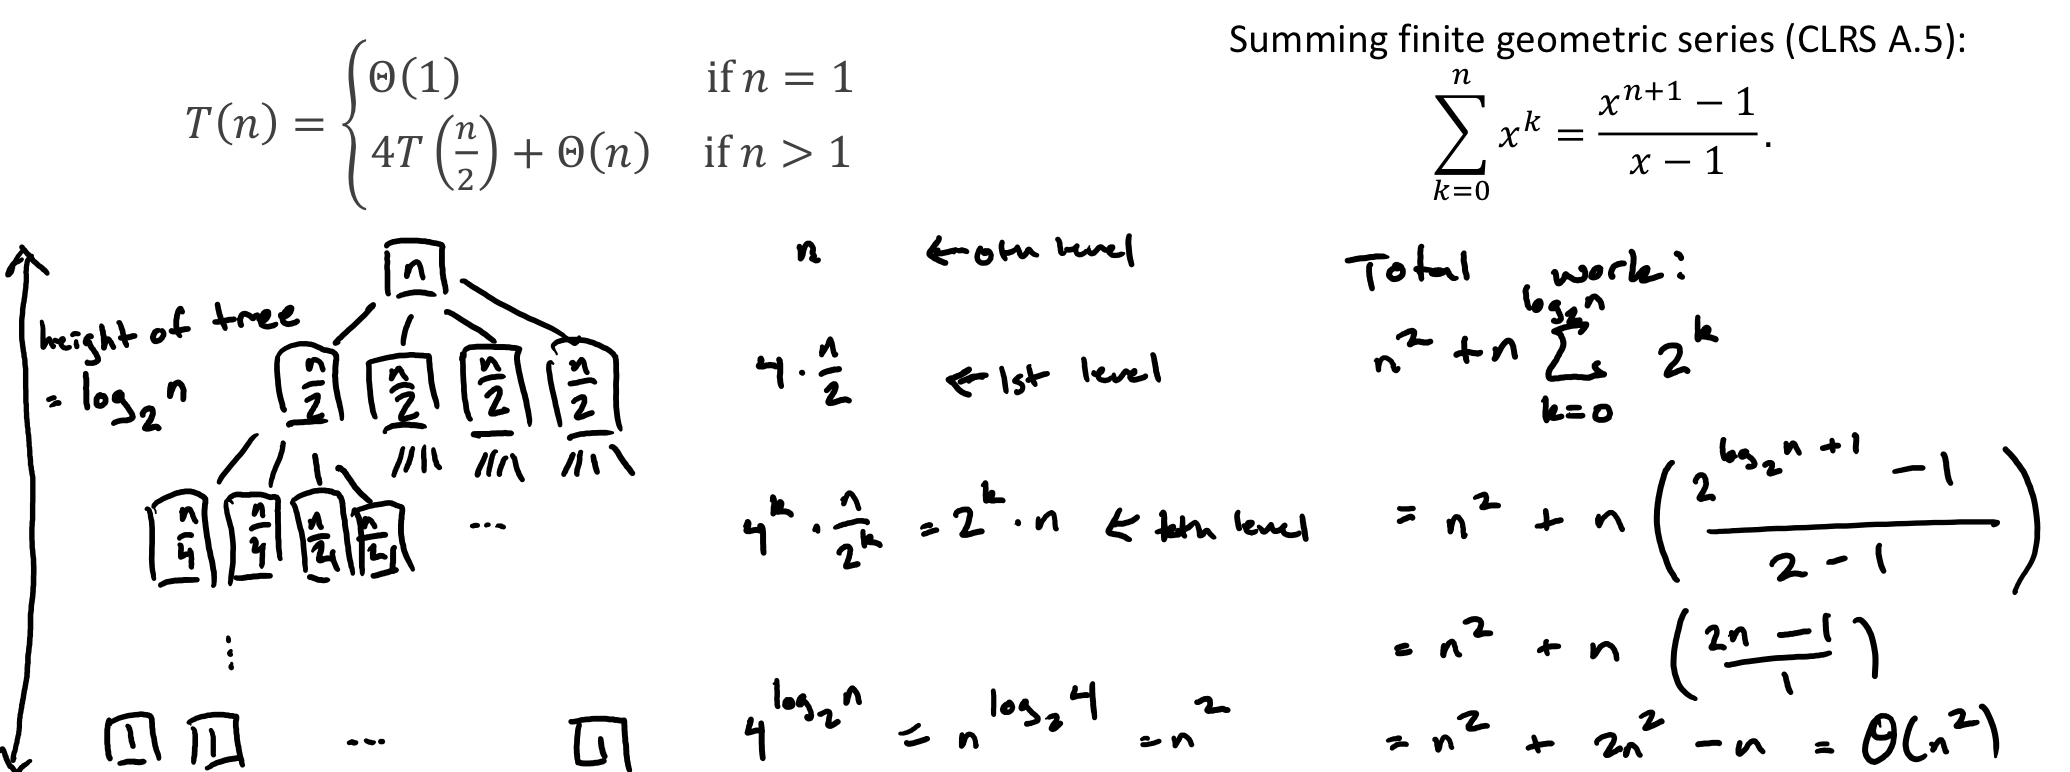 Summing finite geometric series (CLRS A.5):
T(n) = { Θ(1) if n = 1
4T(n/2) + Θ(n) if n > 1
∑_{k=0}^{n} x^k = (x^{n+1} − 1)/(x − 1).
height of tree
= log₂ n
n
n/2 n/2 n/2 n/2
n/4 n/4 n/4 n/4 ...
⋮
1 1 ... 1
n ← 0th level
4 · n/2 ← 1st level
4^k · n/2^k = 2^k · n ← kth level
4^{log₂ n} = n^{log₂ 4} = n²
Total work:
n² + n ∑_{k=0}^{log₂ n} 2^k
= n² + n ((2^{log₂ n + 1} − 1)/(2 − 1))
= n² + n ((2n − 1)/1)
= n² + 2n² − n = Θ(n²)